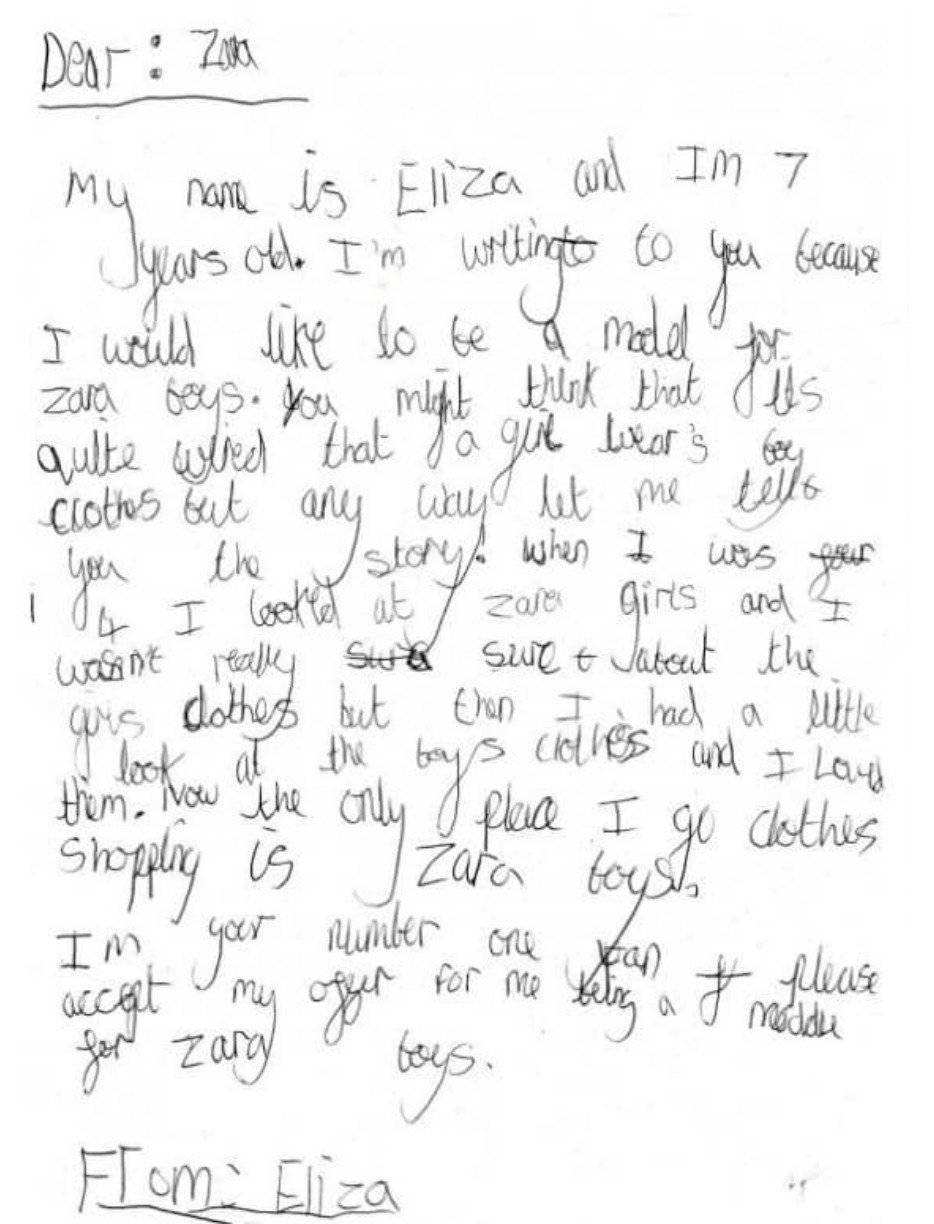 Dear : Zara
My name is Eliza and Im 7
years old. I'm writing to you because
I would like to be a model for
zara boys. you might think that its
quite wired that a girl wear's boy
clothes but any way let me tell
you the story. when I was
4 I looked at zara girls and I
wasn't really sure about the
girls clothes but then I had a little
look at the boys clothes and I Loved
them. Now the only place I go clothes
shopping is Zara boys.
Im your number one fan please
accept my offer for me being a moddle
for zara boys.
From: Eliza